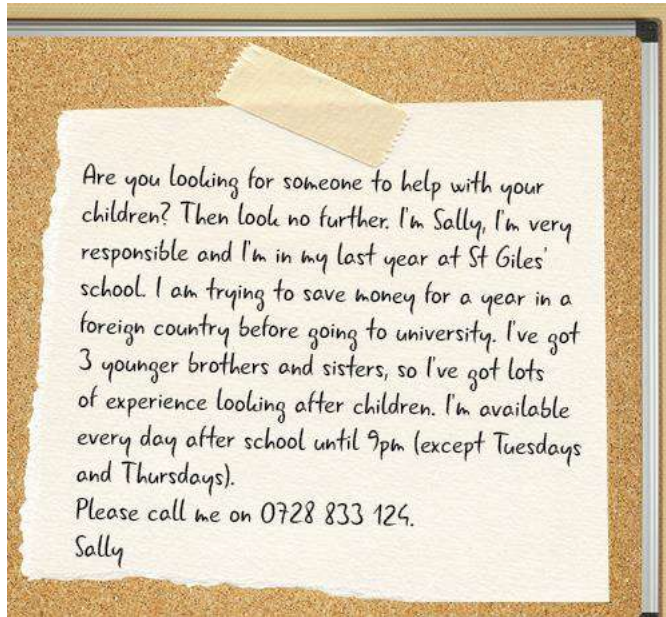 Are you looking for someone to help with your
children? Then look no further. I'm Sally, I'm very
responsible and I'm in my last year at St Giles'
school. I am trying to save money for a year in a
foreign country before going to university. I've got
3 younger brothers and sisters, so I've got lots
of experience looking after children. I'm available
every day after school until 9pm (except Tuesdays
and Thursdays).
Please call me on 0728 833 124.
Sally